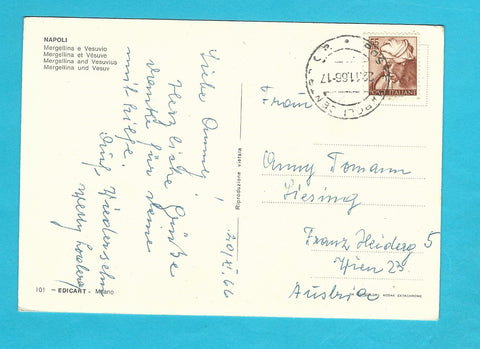 NAPOLI
Mergellina e Vesuvio
Mergellina et Vésuve
Mergellina and Vesuvius
Mergellina und Vesuv
20/XI. 66
Liebe Anny!
Herzliche Grüße
danke für deine
mithilfe.
Auf Wiedersehn
101 - EDICART - Milano
Riproduzione vietata
NAPOLI
22.11.66-17
POSTE ITALIANE
Frau
Anny Tomann
Liesing
Franz Heiderg 5
Wien 23.
Austria
KODAK EKTACHROME